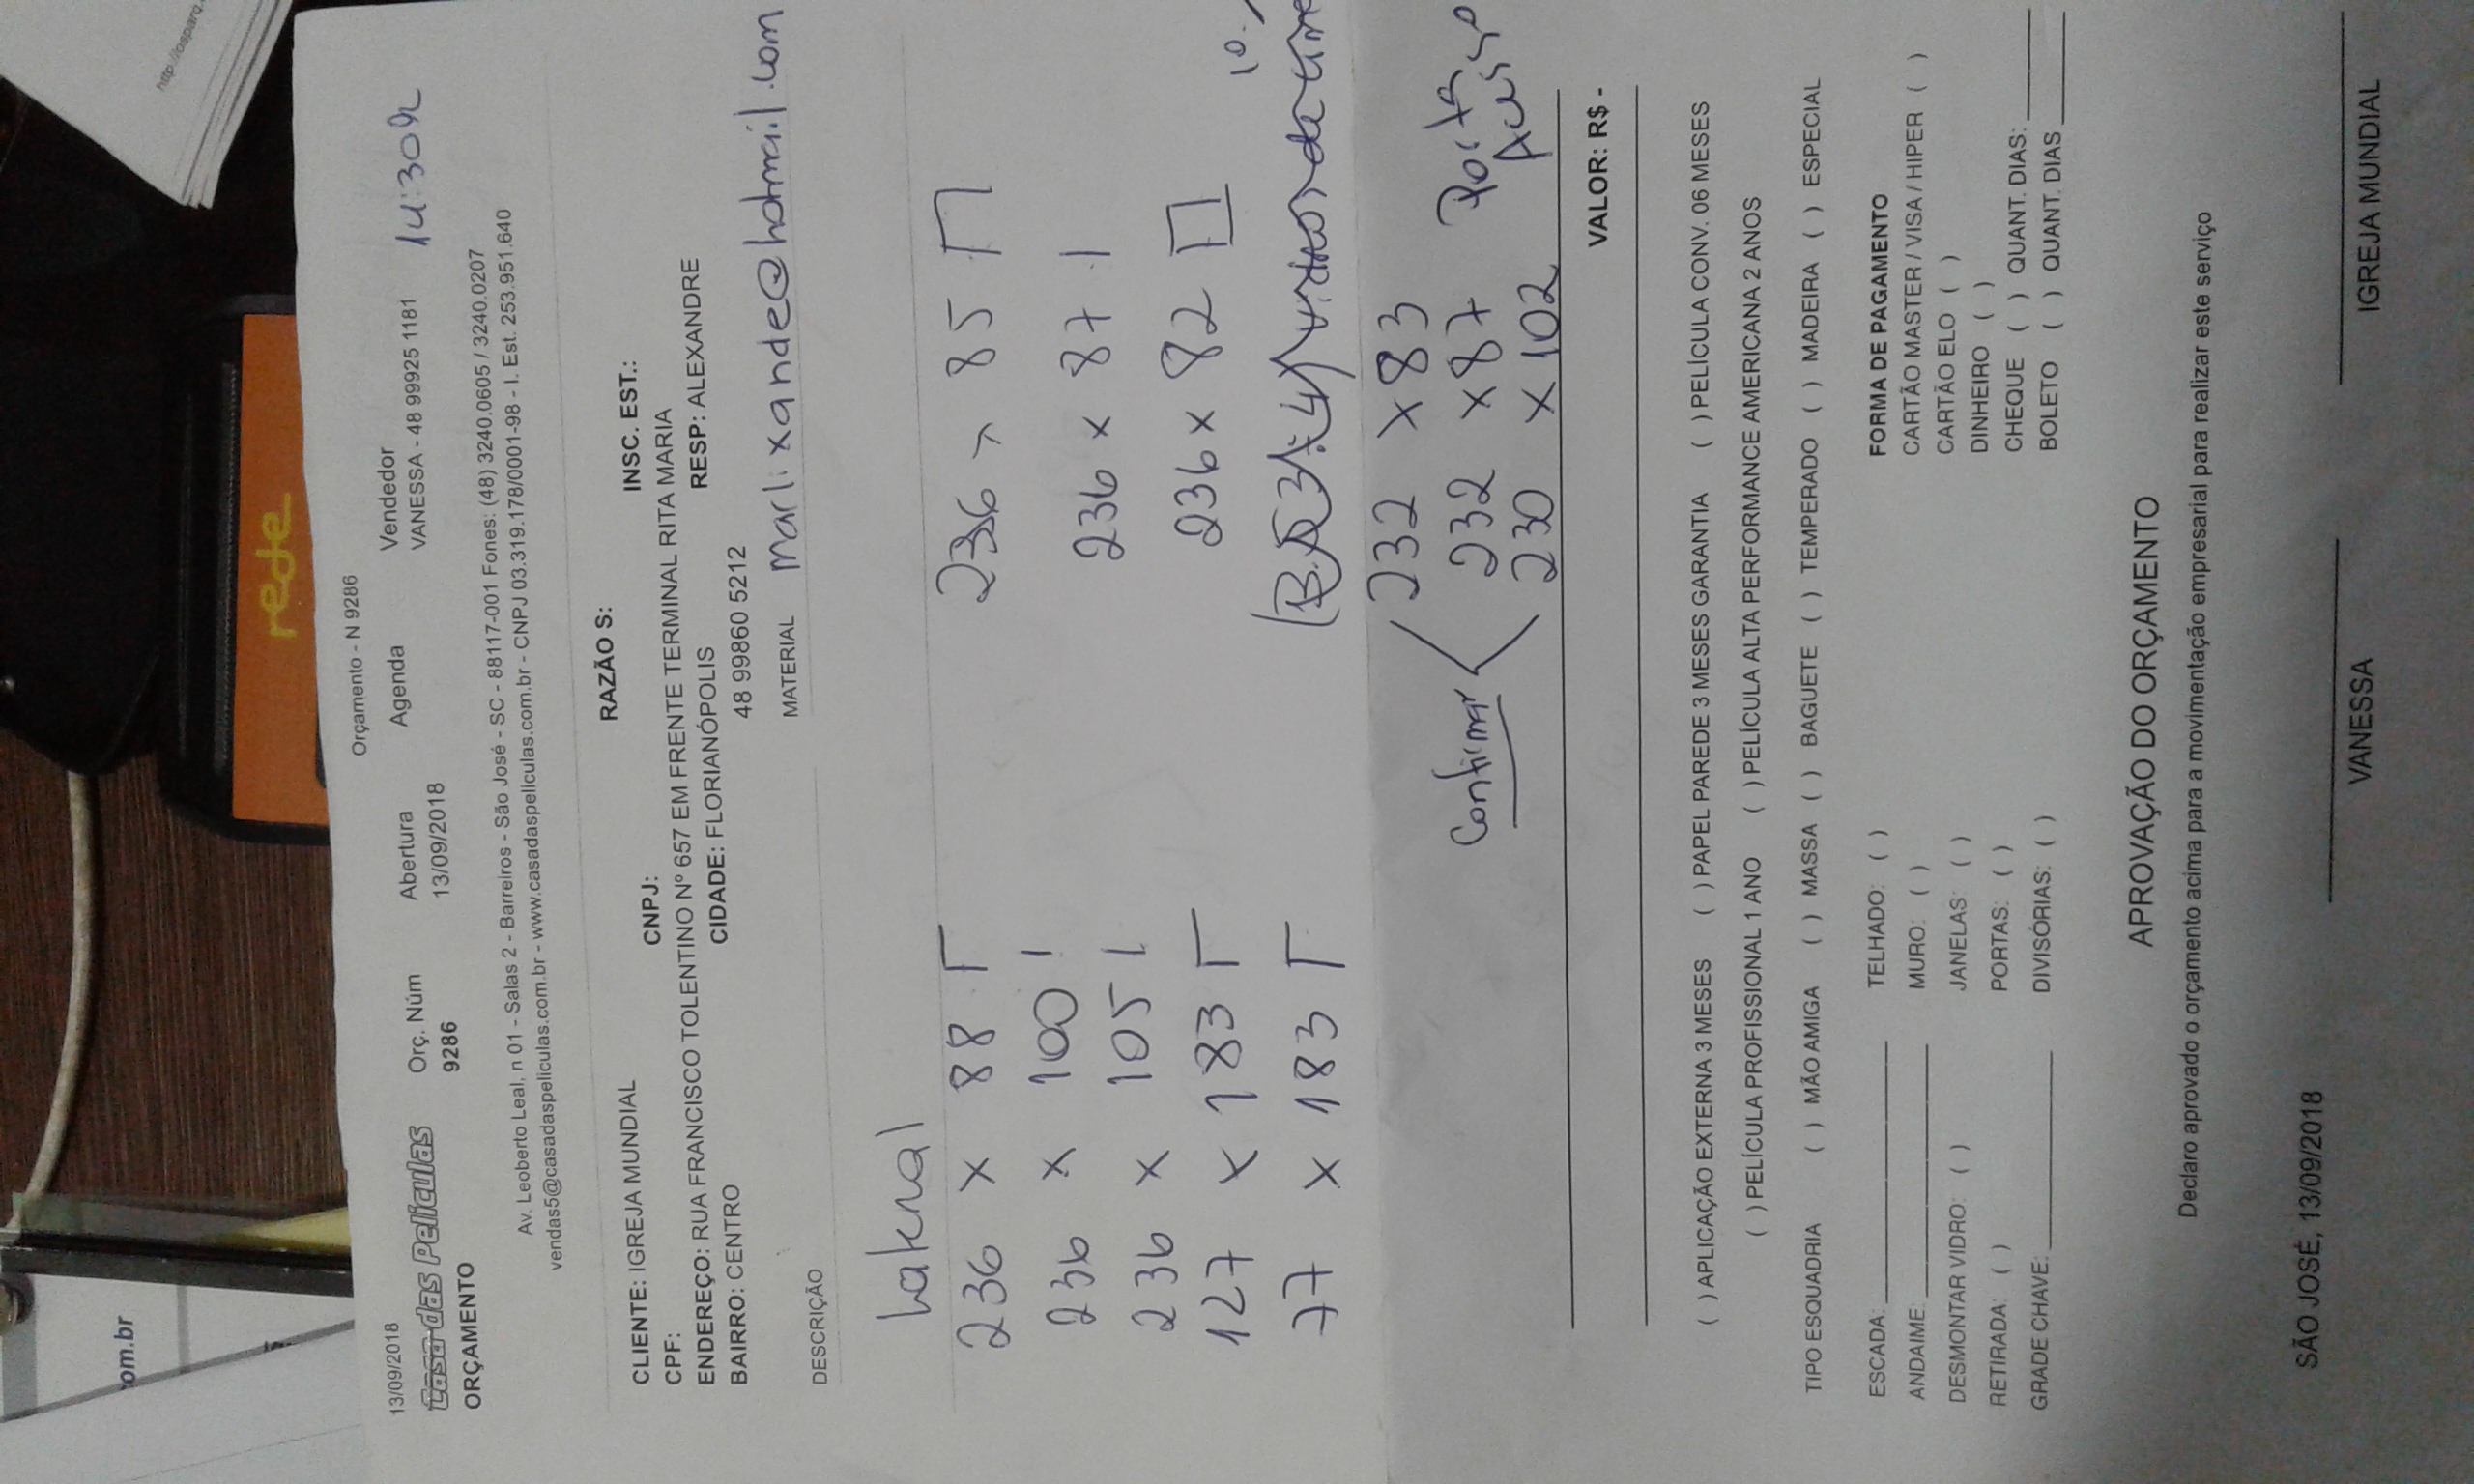 http://osparq
rede
om.br
Orçamento - N 9286
13/09/2018
Casa das Películas
Orç. Núm
Abertura
Agenda
Vendedor
ORÇAMENTO
9286
13/09/2018
VANESSA - 48 99925 1181
14:30h
Av. Leoberto Leal, n 01 - Salas 2 - Barreiros - São José - SC - 88117-001 Fones: (48) 3240.0605 / 3240.0207
vendas5@casadaspeliculas.com.br - www.casadaspeliculas.com.br - CNPJ 03.319.178/0001-98 - I. Est. 253.951.640
RAZÃO S:
CLIENTE: IGREJA MUNDIAL
CNPJ:
INSC. EST.:
CPF:
ENDEREÇO: RUA FRANCISCO TOLENTINO Nº 657 EM FRENTE TERMINAL RITA MARIA
BAIRRO: CENTRO
CIDADE: FLORIANÓPOLIS
RESP: ALEXANDRE
48 99860 5212
DESCRIÇÃO
MATERIAL
marlixandre@hotmail.com
Lateral
236 x 88
236 x 85
236 x 100
236 x 87
236 x 105
236 x 82
127 x 183
77 x 183
10.
232 x 83
Confirmar
232 x 87
Porta
Acesso
230 x 102
VALOR: R$ -
( ) APLICAÇÃO EXTERNA 3 MESES ( ) PAPEL PAREDE 3 MESES GARANTIA ( ) PELÍCULA CONV. 06 MESES
( ) PELÍCULA PROFISSIONAL 1 ANO ( ) PELÍCULA ALTA PERFORMANCE AMERICANA 2 ANOS
TIPO ESQUADRIA ( ) MÃO AMIGA ( ) MASSA ( ) BAGUETE ( ) TEMPERADO ( ) MADEIRA ( ) ESPECIAL
ESCADA: TELHADO: ( ) FORMA DE PAGAMENTO
ANDAIME: MURO: ( ) CARTÃO MASTER / VISA / HIPER ( )
DESMONTAR VIDRO: ( ) JANELAS: ( ) CARTÃO ELO ( )
RETIRADA: ( ) PORTAS: ( ) DINHEIRO ( )
GRADE CHAVE: DIVISÓRIAS: ( ) CHEQUE ( ) QUANT. DIAS:
BOLETO ( ) QUANT. DIAS
APROVAÇÃO DO ORÇAMENTO
Declaro aprovado o orçamento acima para a movimentação empresarial para realizar este serviço
SÃO JOSÉ, 13/09/2018
VANESSA
IGREJA MUNDIAL